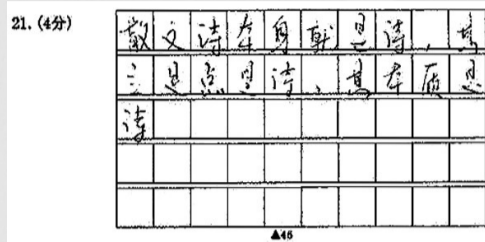 21. (4分)
散文诗本身就是诗，其
主是点是诗，其本质是
诗
▲45